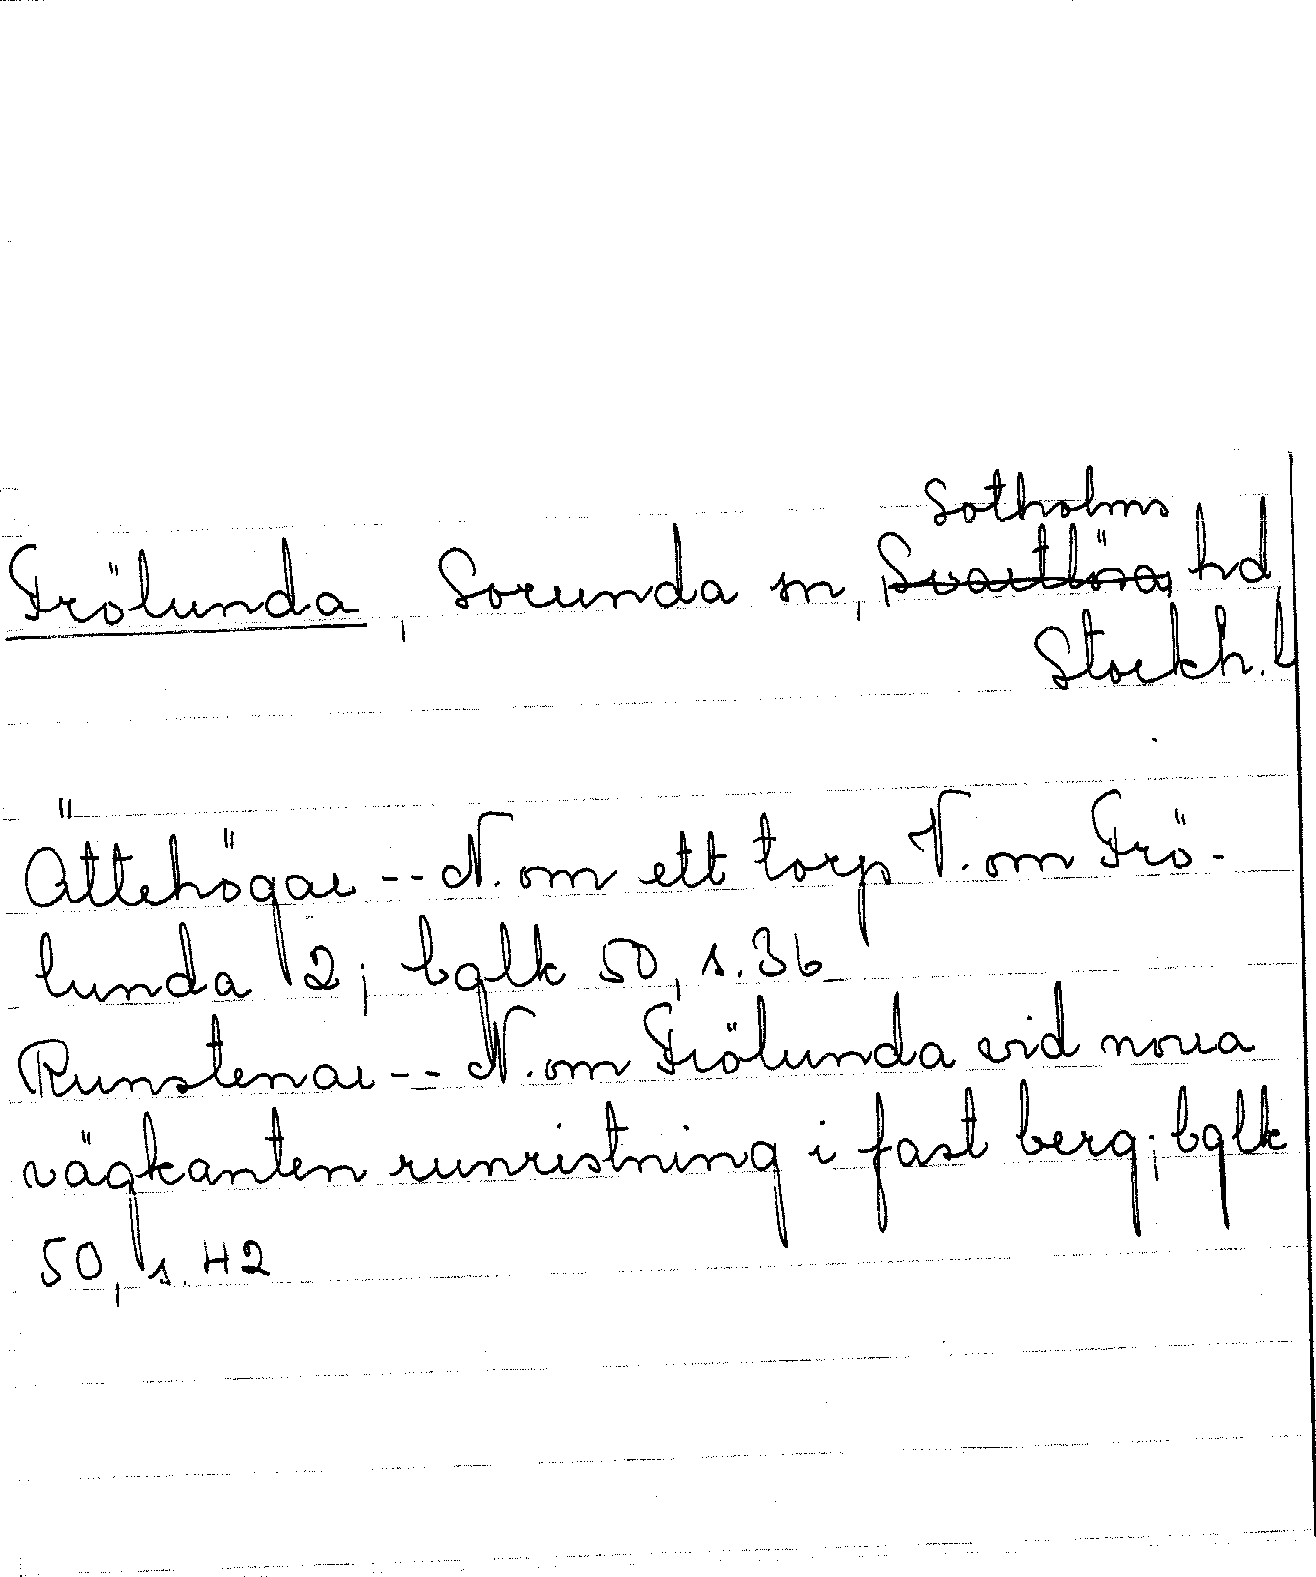 Sotholms
Frölunda, Sorunda sn, Svartlösa hd
Stockh. L
Ättehögar -- N. om ett torp V. om Frö-
lunda 2; bglk 50, s. 36
Runstenar -- N. om Frölunda vid norra
vägkanten runristning i fast berg; bglk
50, s. 42